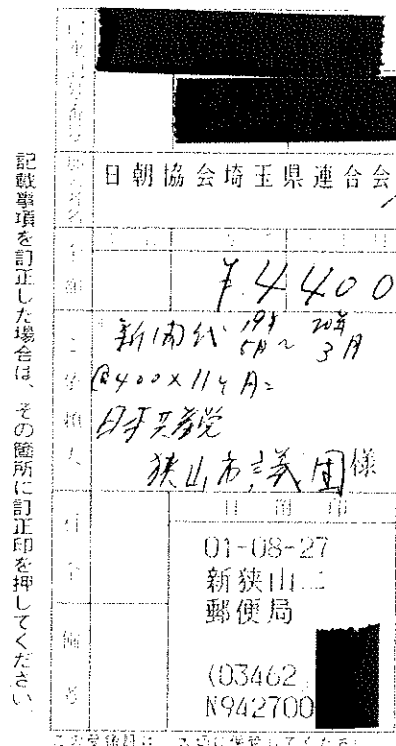 記載事項を訂正した場合は、その箇所に訂正印を押してください。
日朝協会埼玉県連合会
¥4400
新聞代 19年5月～20年3月
@400×11ヶ月=
日本共産党
狭山市議団様
日附印
01-08-27
新狭山二
郵便局
(03462
N942700